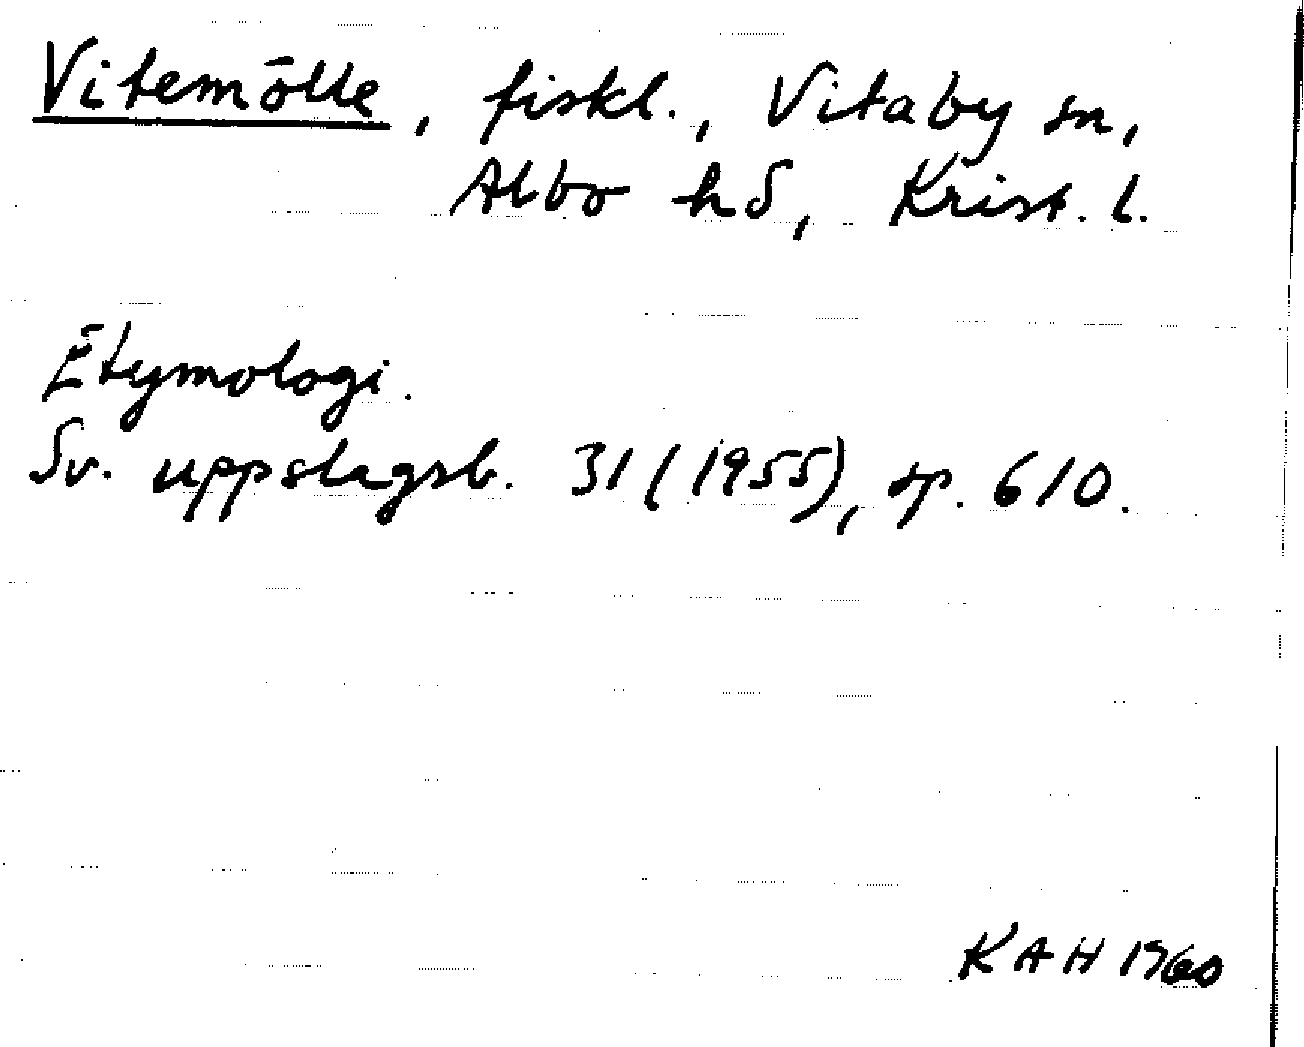 Vitemölle, fiskl., Vitaby sn,
Albo hd, Krist. l.
Etymologi.
Sv. uppslagsb. 31 (1955), sp. 610.
KAH 1960